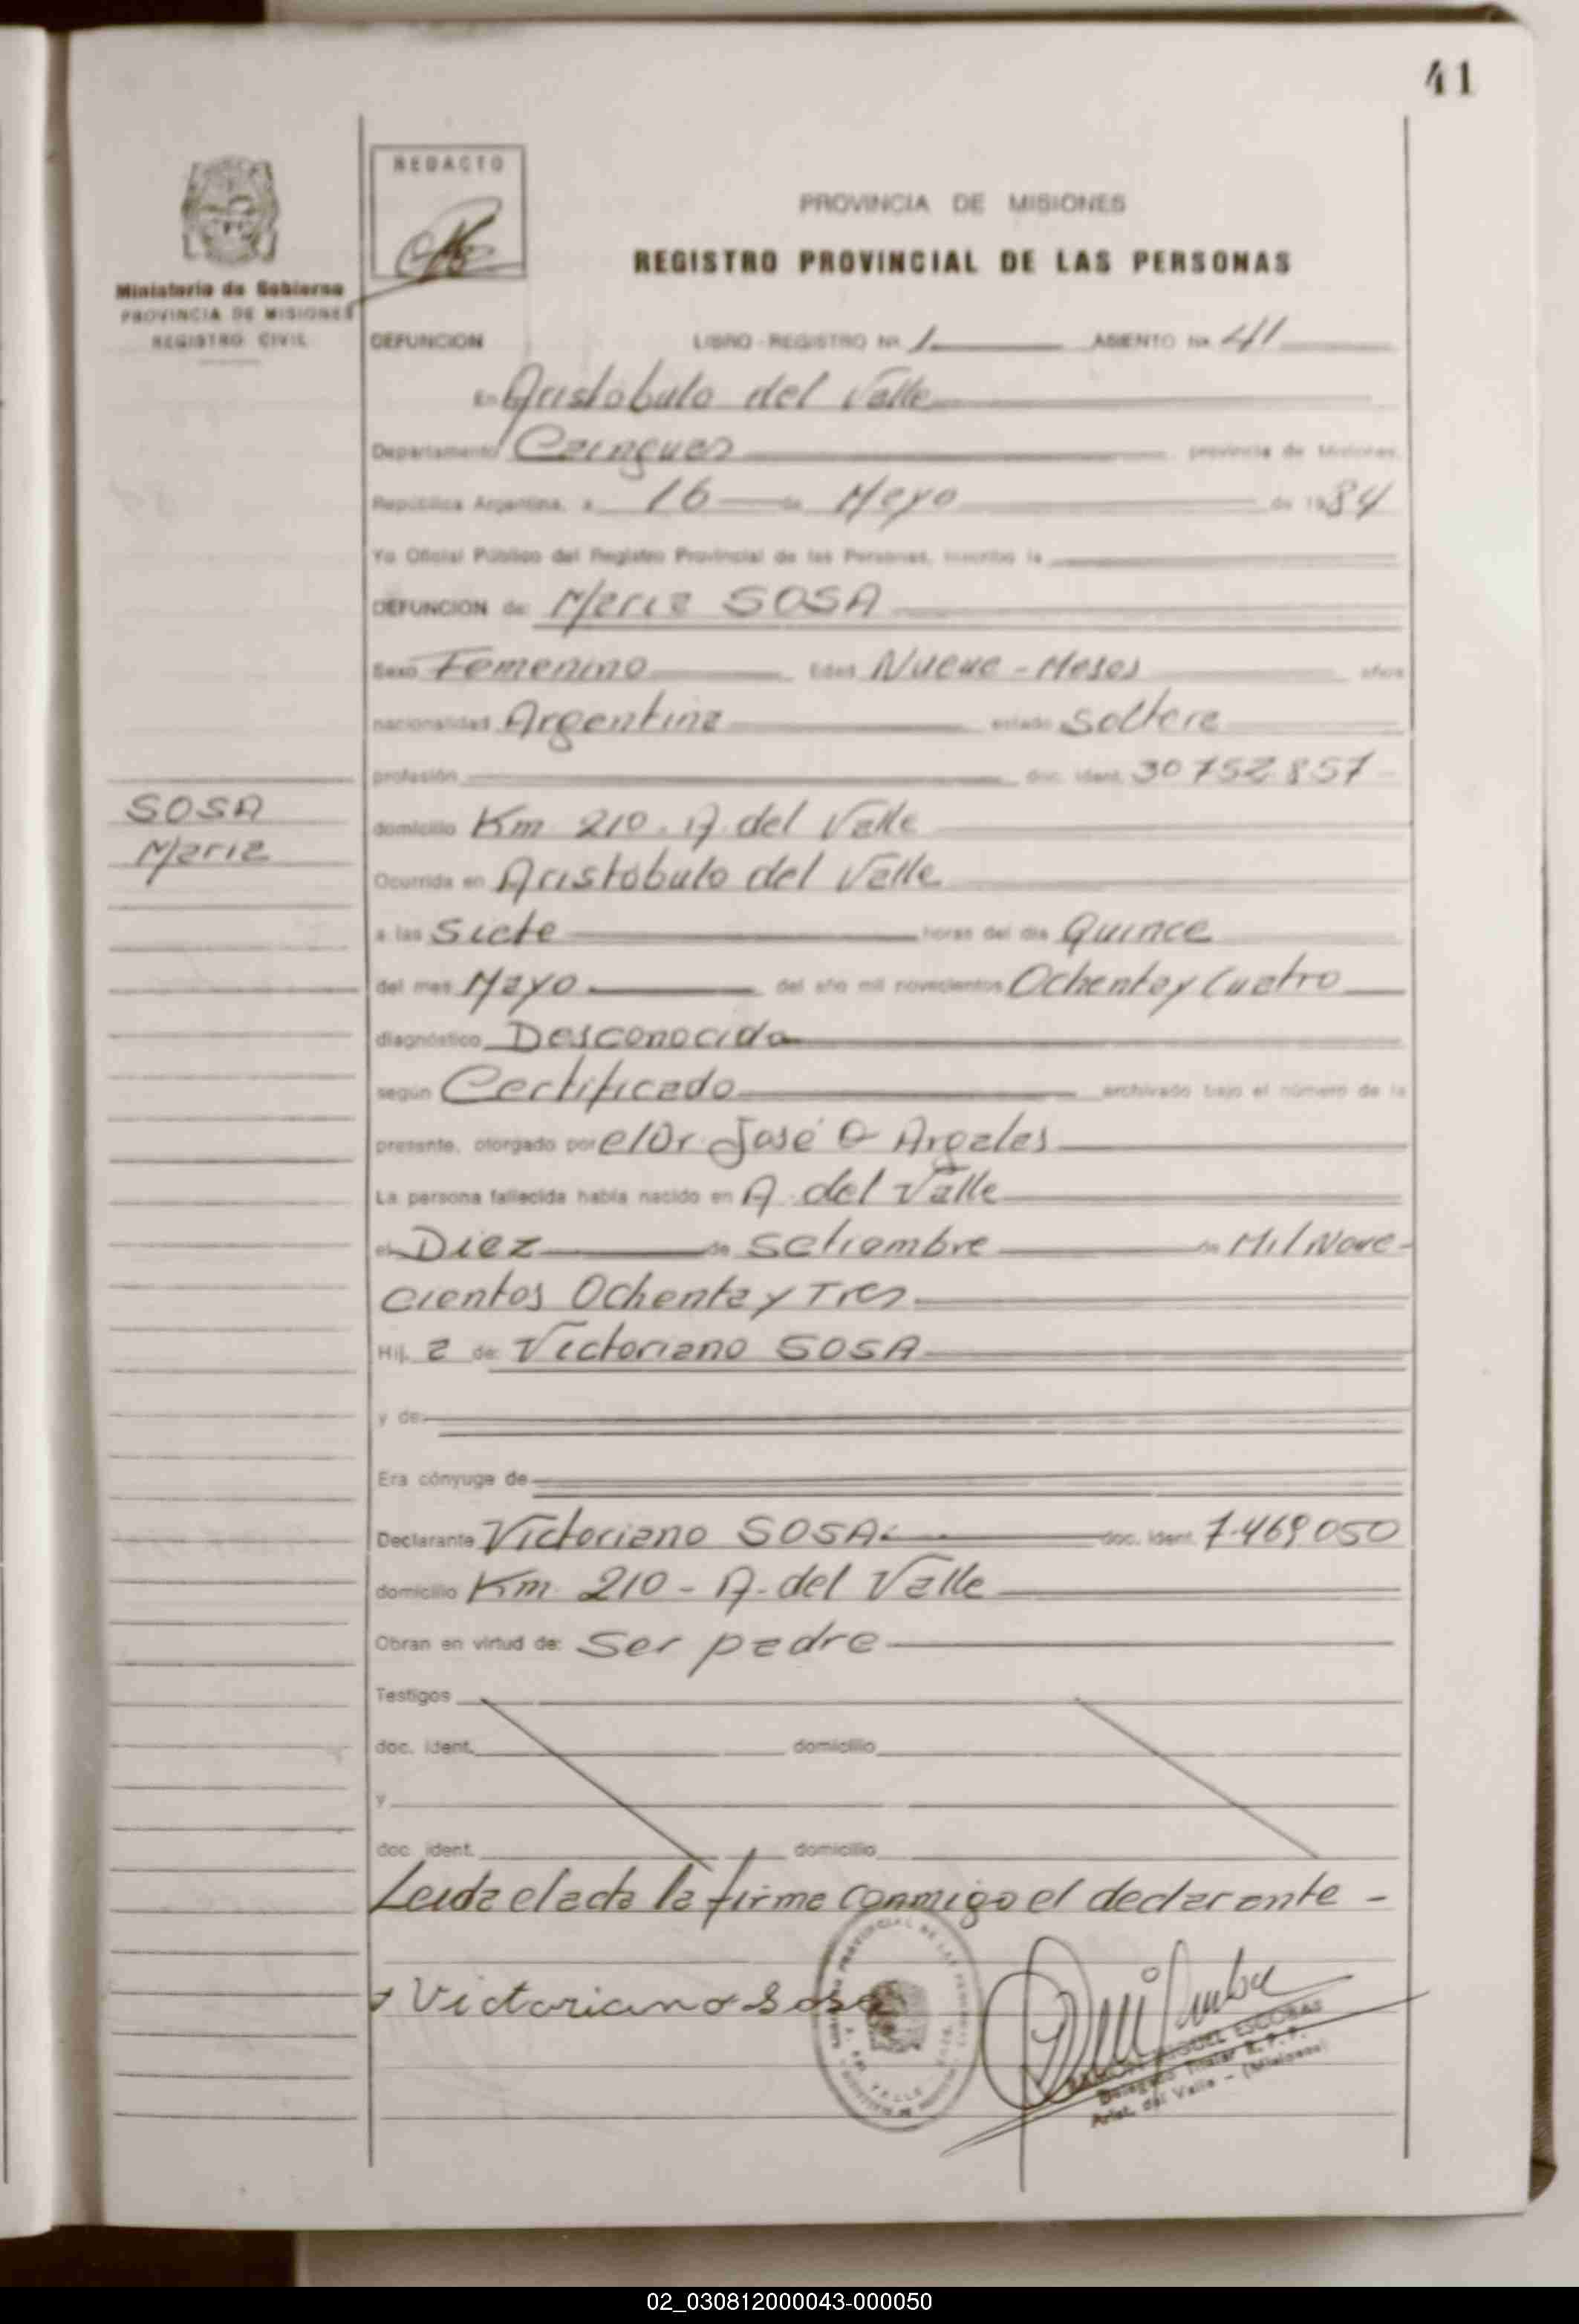 41
REDACTO
PROVINCIA DE MISIONES
REGISTRO PROVINCIAL DE LAS PERSONAS
Ministerio de Gobierno
PROVINCIA DE MISIONES
REGISTRO CIVIL
DEFUNCION LIBRO - REGISTRO Nº 1 ASIENTO Nº 41
En Aristobulo del Valle
Departamento Cainguas provincia de Misiones,
República Argentina, a 16 de Mayo de 1984
Yo Oficial Público del Registro Provincial de las Personas, inscribo la
DEFUNCION de: Maria SOSA
Sexo Femenino Edad Nueve - Meses años
nacionalidad Argentina estado Soltera
profesión doc. ident. 30 752 857
SOSA
Maria
domicilio Km 210 - A. del Valle
Ocurrida en Aristóbulo del Valle
a las Siete horas del día Quince
del mes Mayo del año mil novecientos Ochenta y Cuatro
diagnóstico Desconocido
según Certificado archivado bajo el número de la
presente, otorgado por el Dr. José O Argales
La persona fallecida había nacido en A. del Valle
el Diez de Setiembre de Mil Nove-
cientos Ochenta y Tres
Hij a de: Victoriano SOSA
y de:
Era cónyuge de
Declarante Victoriano SOSA doc. ident. 7.469 050
domicilio Km 210 - A. del Valle
Obran en virtud de: Ser padre
Testigos
doc. ident. domicilio
y
doc. ident. domicilio
Leida el acta la firma conmigo el declarante -
Victoriano Sosa
RAMON MIGUEL ESCOBAR
Delegado Titular R. P. P.
Arist. del Valle - (Misiones)
02_030812000043-000050